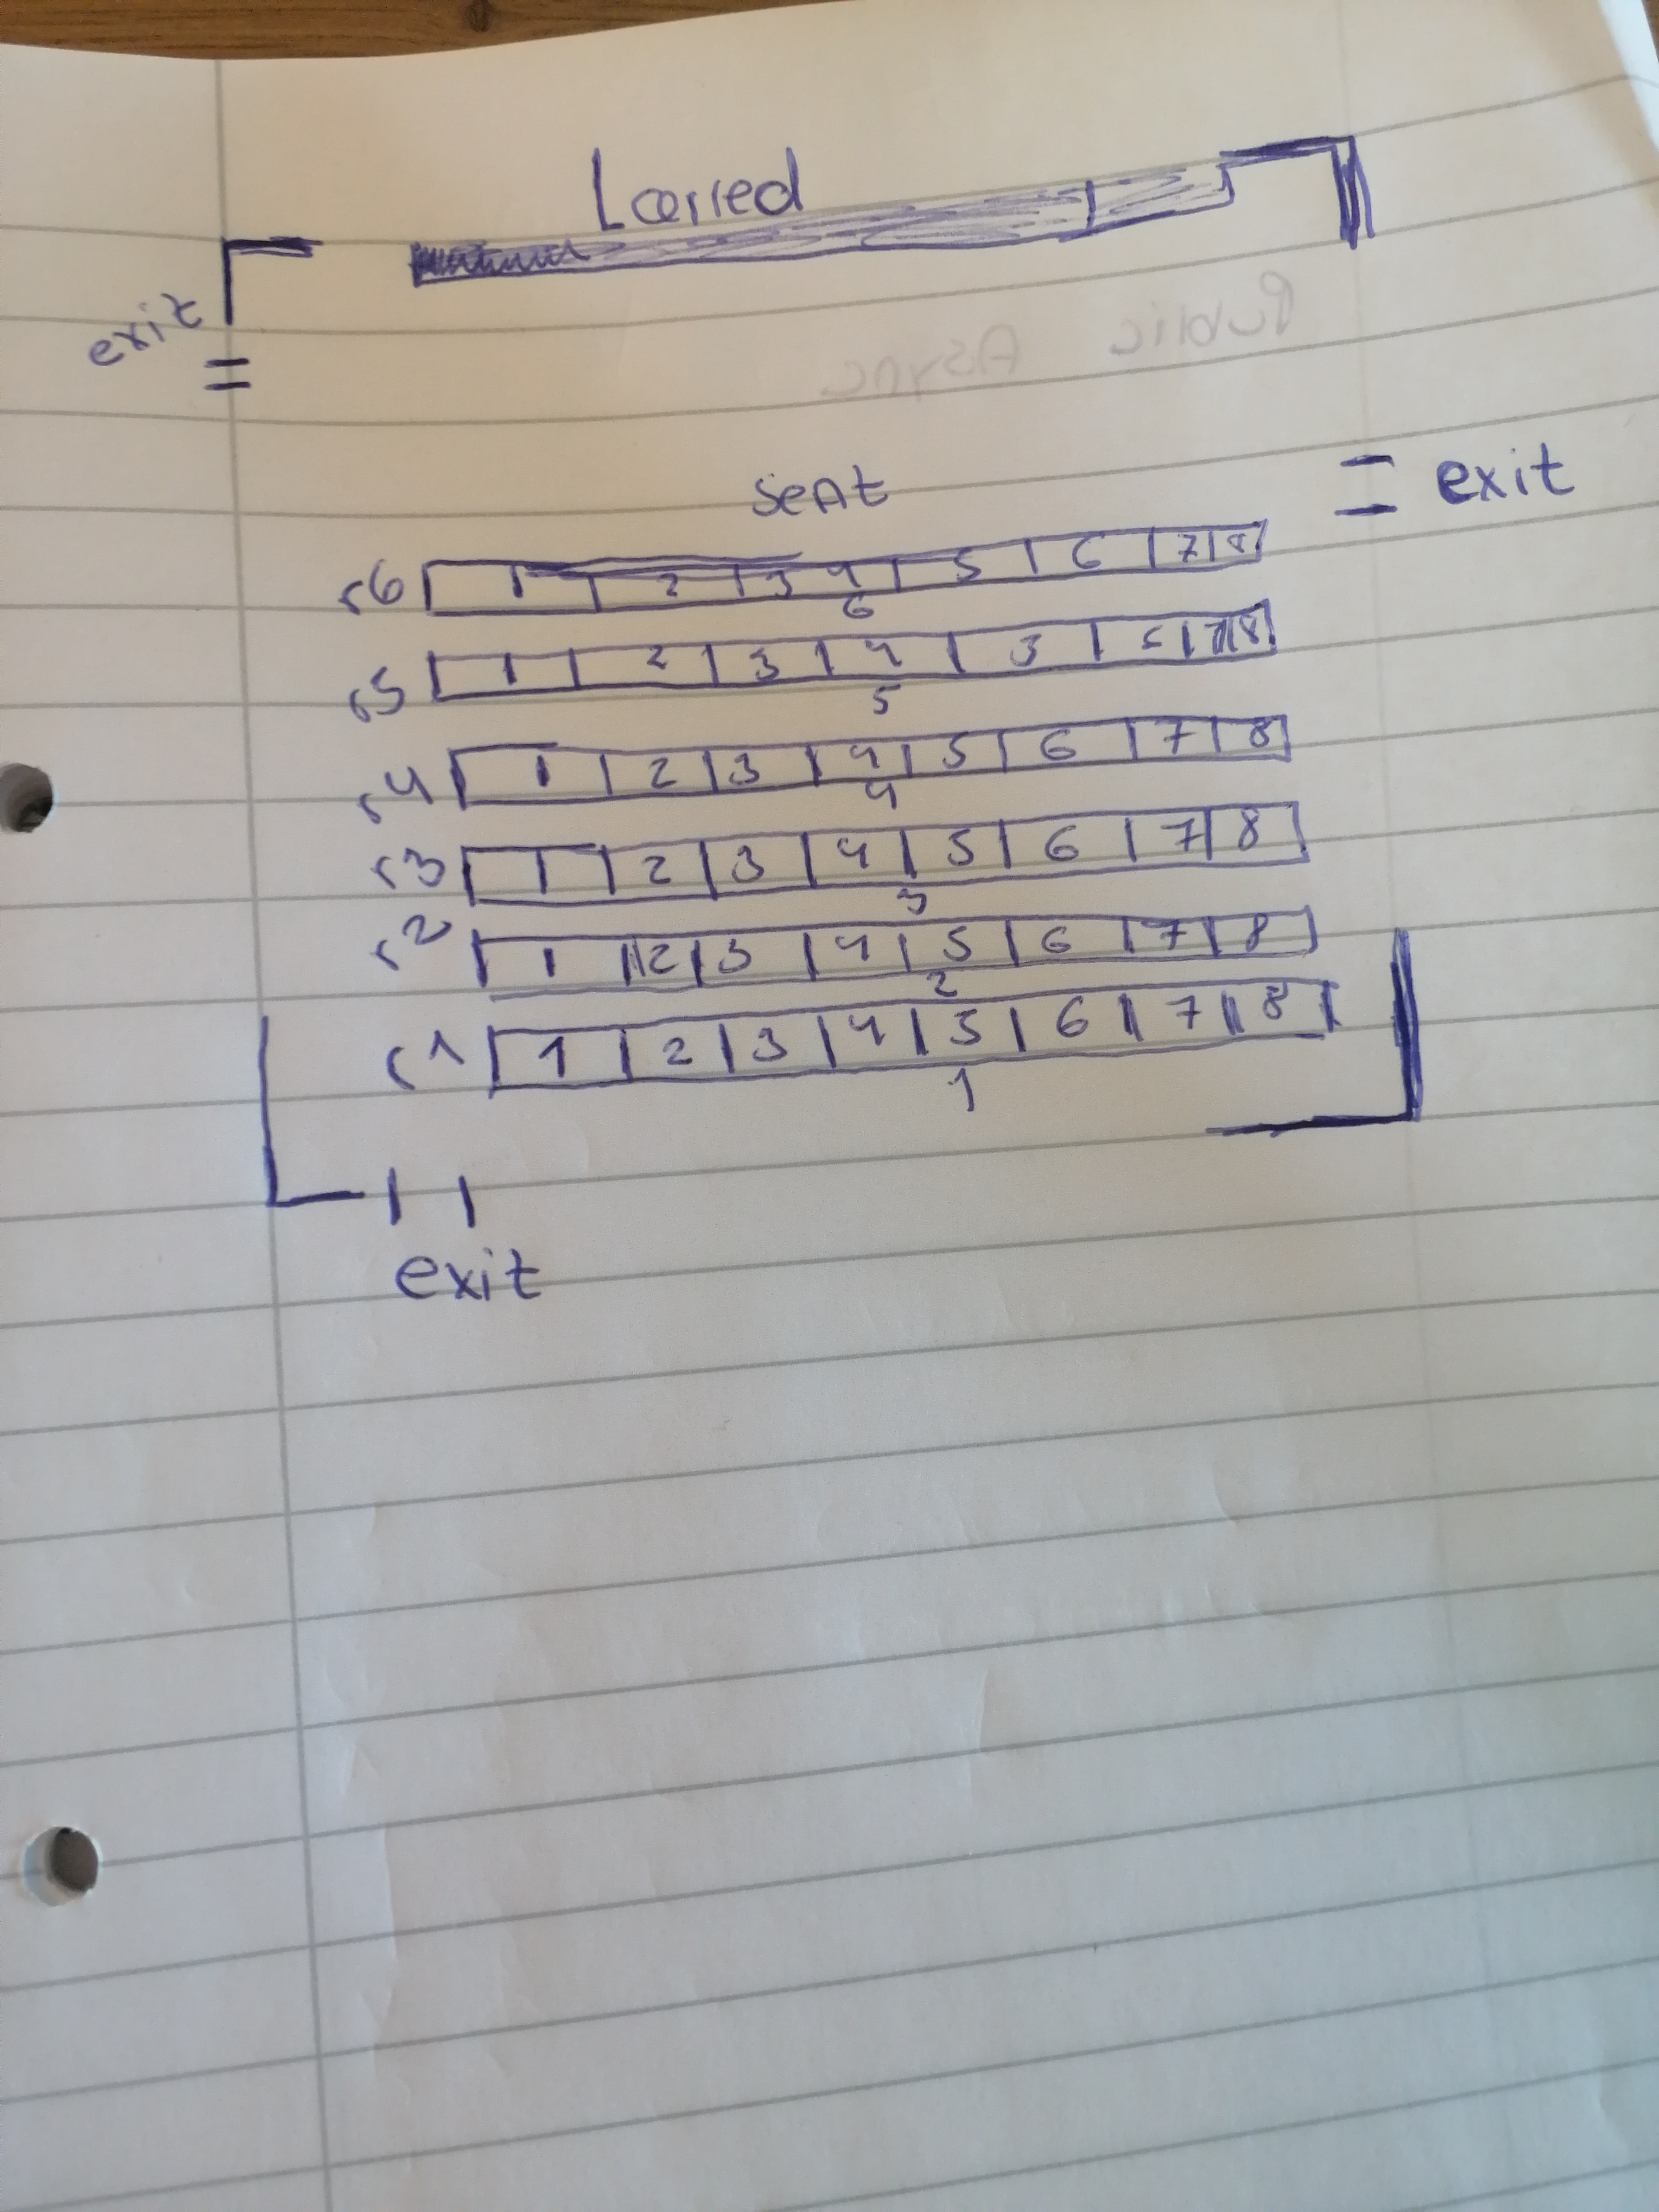 exit
seat
exit
r6 1 2 3 4 5 6 7 8
6
r5 1 2 3 4 5 7 8
5
r4 1 2 3 4 5 6 7 8
4
r3 1 2 3 4 5 6 7 8
3
r2 1 2 3 4 5 6 7 8
2
r1 1 2 3 4 5 6 7 8
1
exit